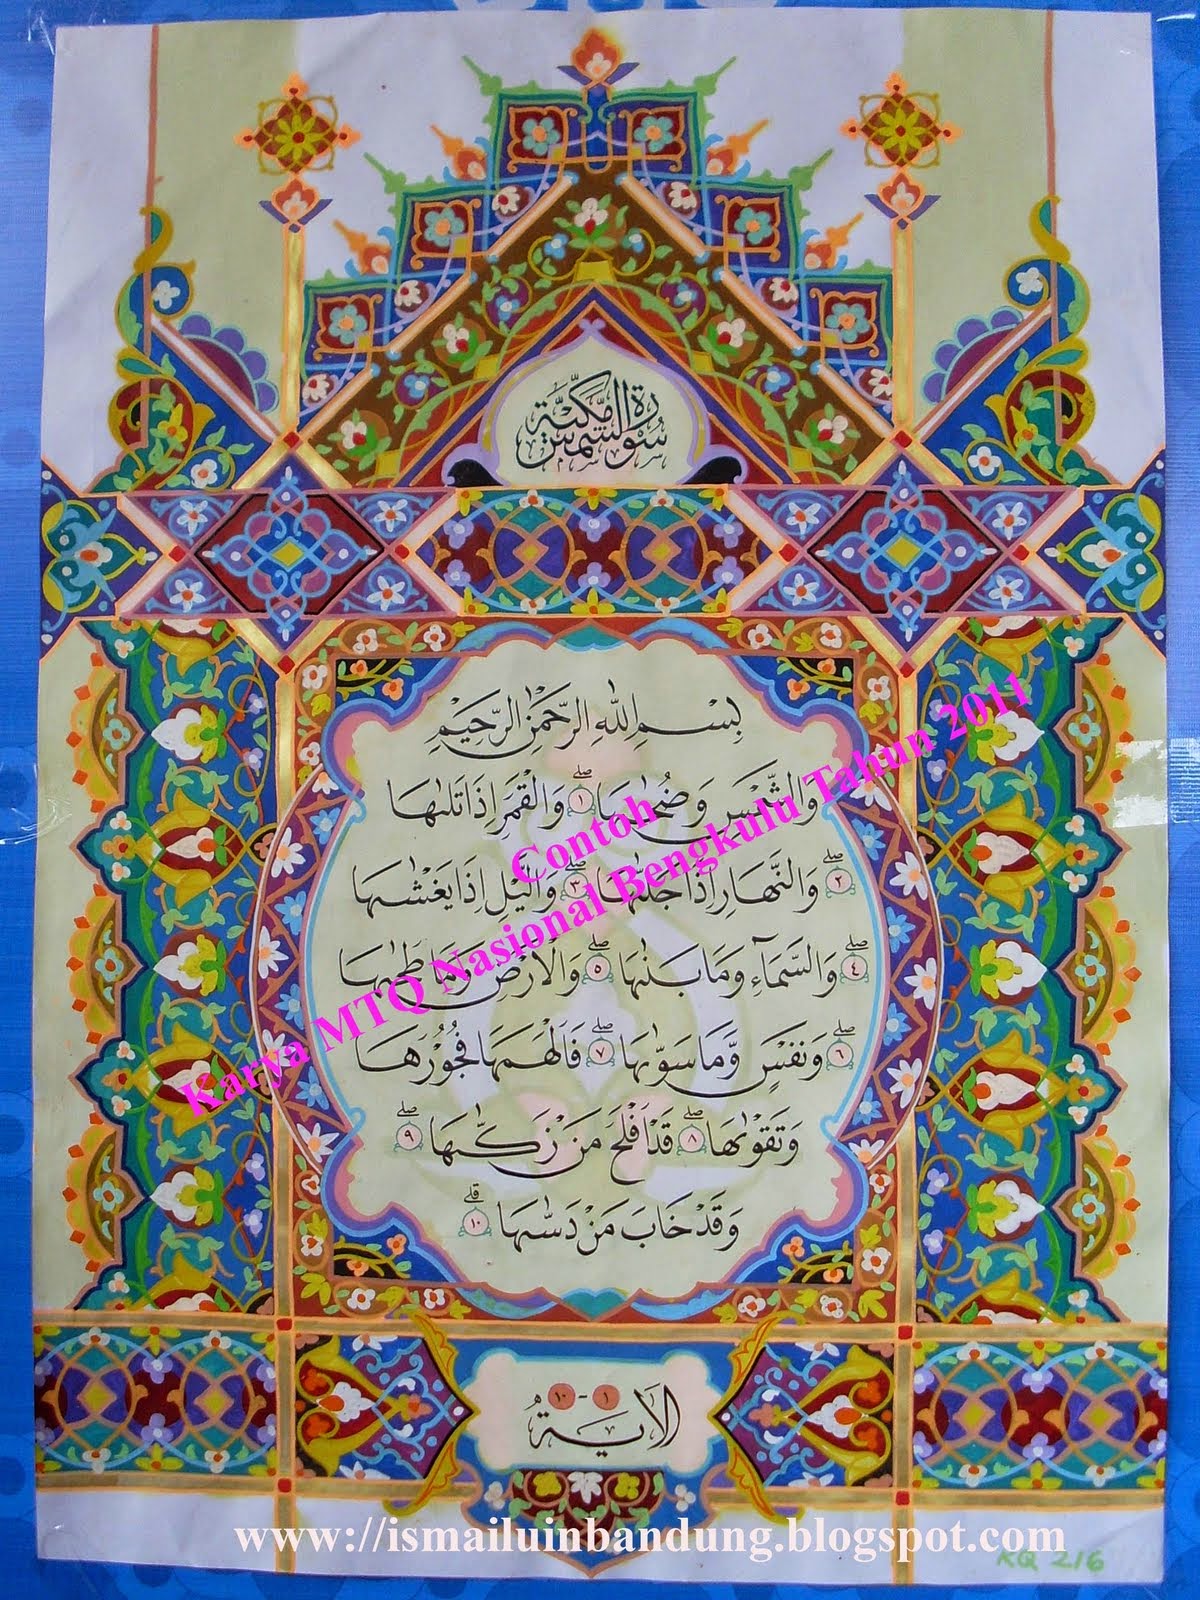 سورة الشمس مكية
بِسْمِ اللهِ الرَّحْمٰنِ الرَّحِيْمِ
وَالشَّمْسِ وَضُحٰىهَا ۝١ۖ وَالْقَمَرِ اِذَا تَلٰىهَا
۝٢ۖ وَالنَّهَارِ اِذَا جَلّٰىهَا ۝٣ۖ وَالَّيْلِ اِذَا يَغْشٰىهَا
۝٤ۖ وَالسَّمَاۤءِ وَمَا بَنٰىهَا ۝٥ۖ وَالْاَرْضِ وَمَا طَحٰىهَا
۝٦ۖ وَنَفْسٍ وَّمَا سَوّٰىهَا ۝٧ۖ فَاَلْهَمَهَا فُجُوْرَهَا
وَتَقْوٰىهَا ۝٨ۖ قَدْ اَفْلَحَ مَنْ زَكّٰىهَا ۝٩ۖ
وَقَدْ خَابَ مَنْ دَسّٰىهَا ۝١٠ۗ
Contoh
Karya MTQ Nasional Bengkulu Tahun 2011
١ - ١٠
الاية
www://ismailuinbandung.blogspot.com
KQ 216